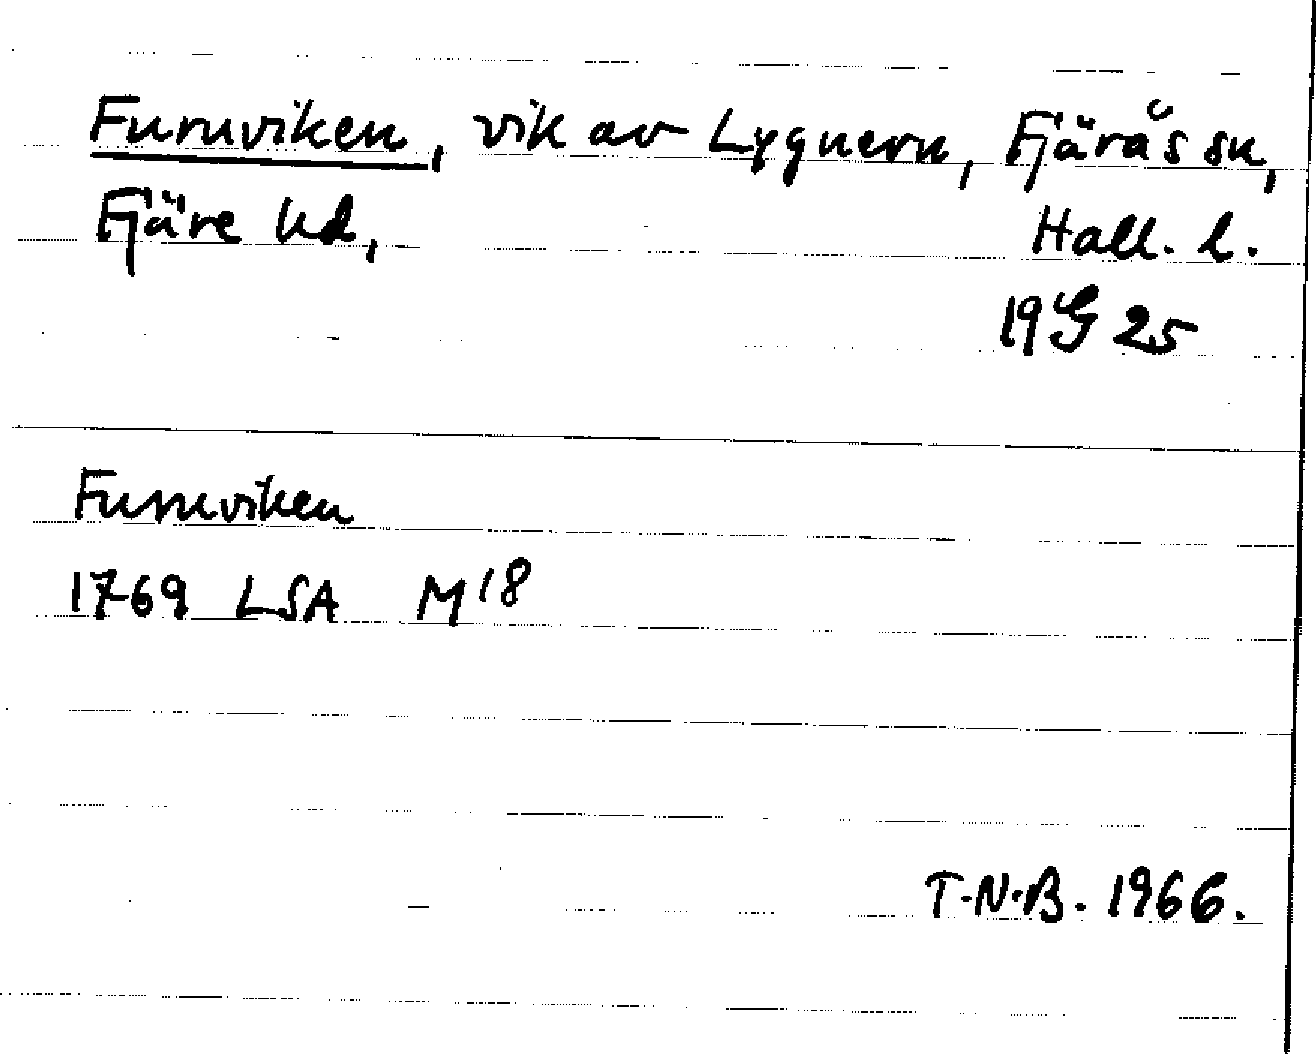 Furuviken, vik av Lygnern, Fjärås sn,
Fjäre hd, Hall. l.
19 G 25
Furuviken
1769 LSA M 18
T.N.B. 1966.